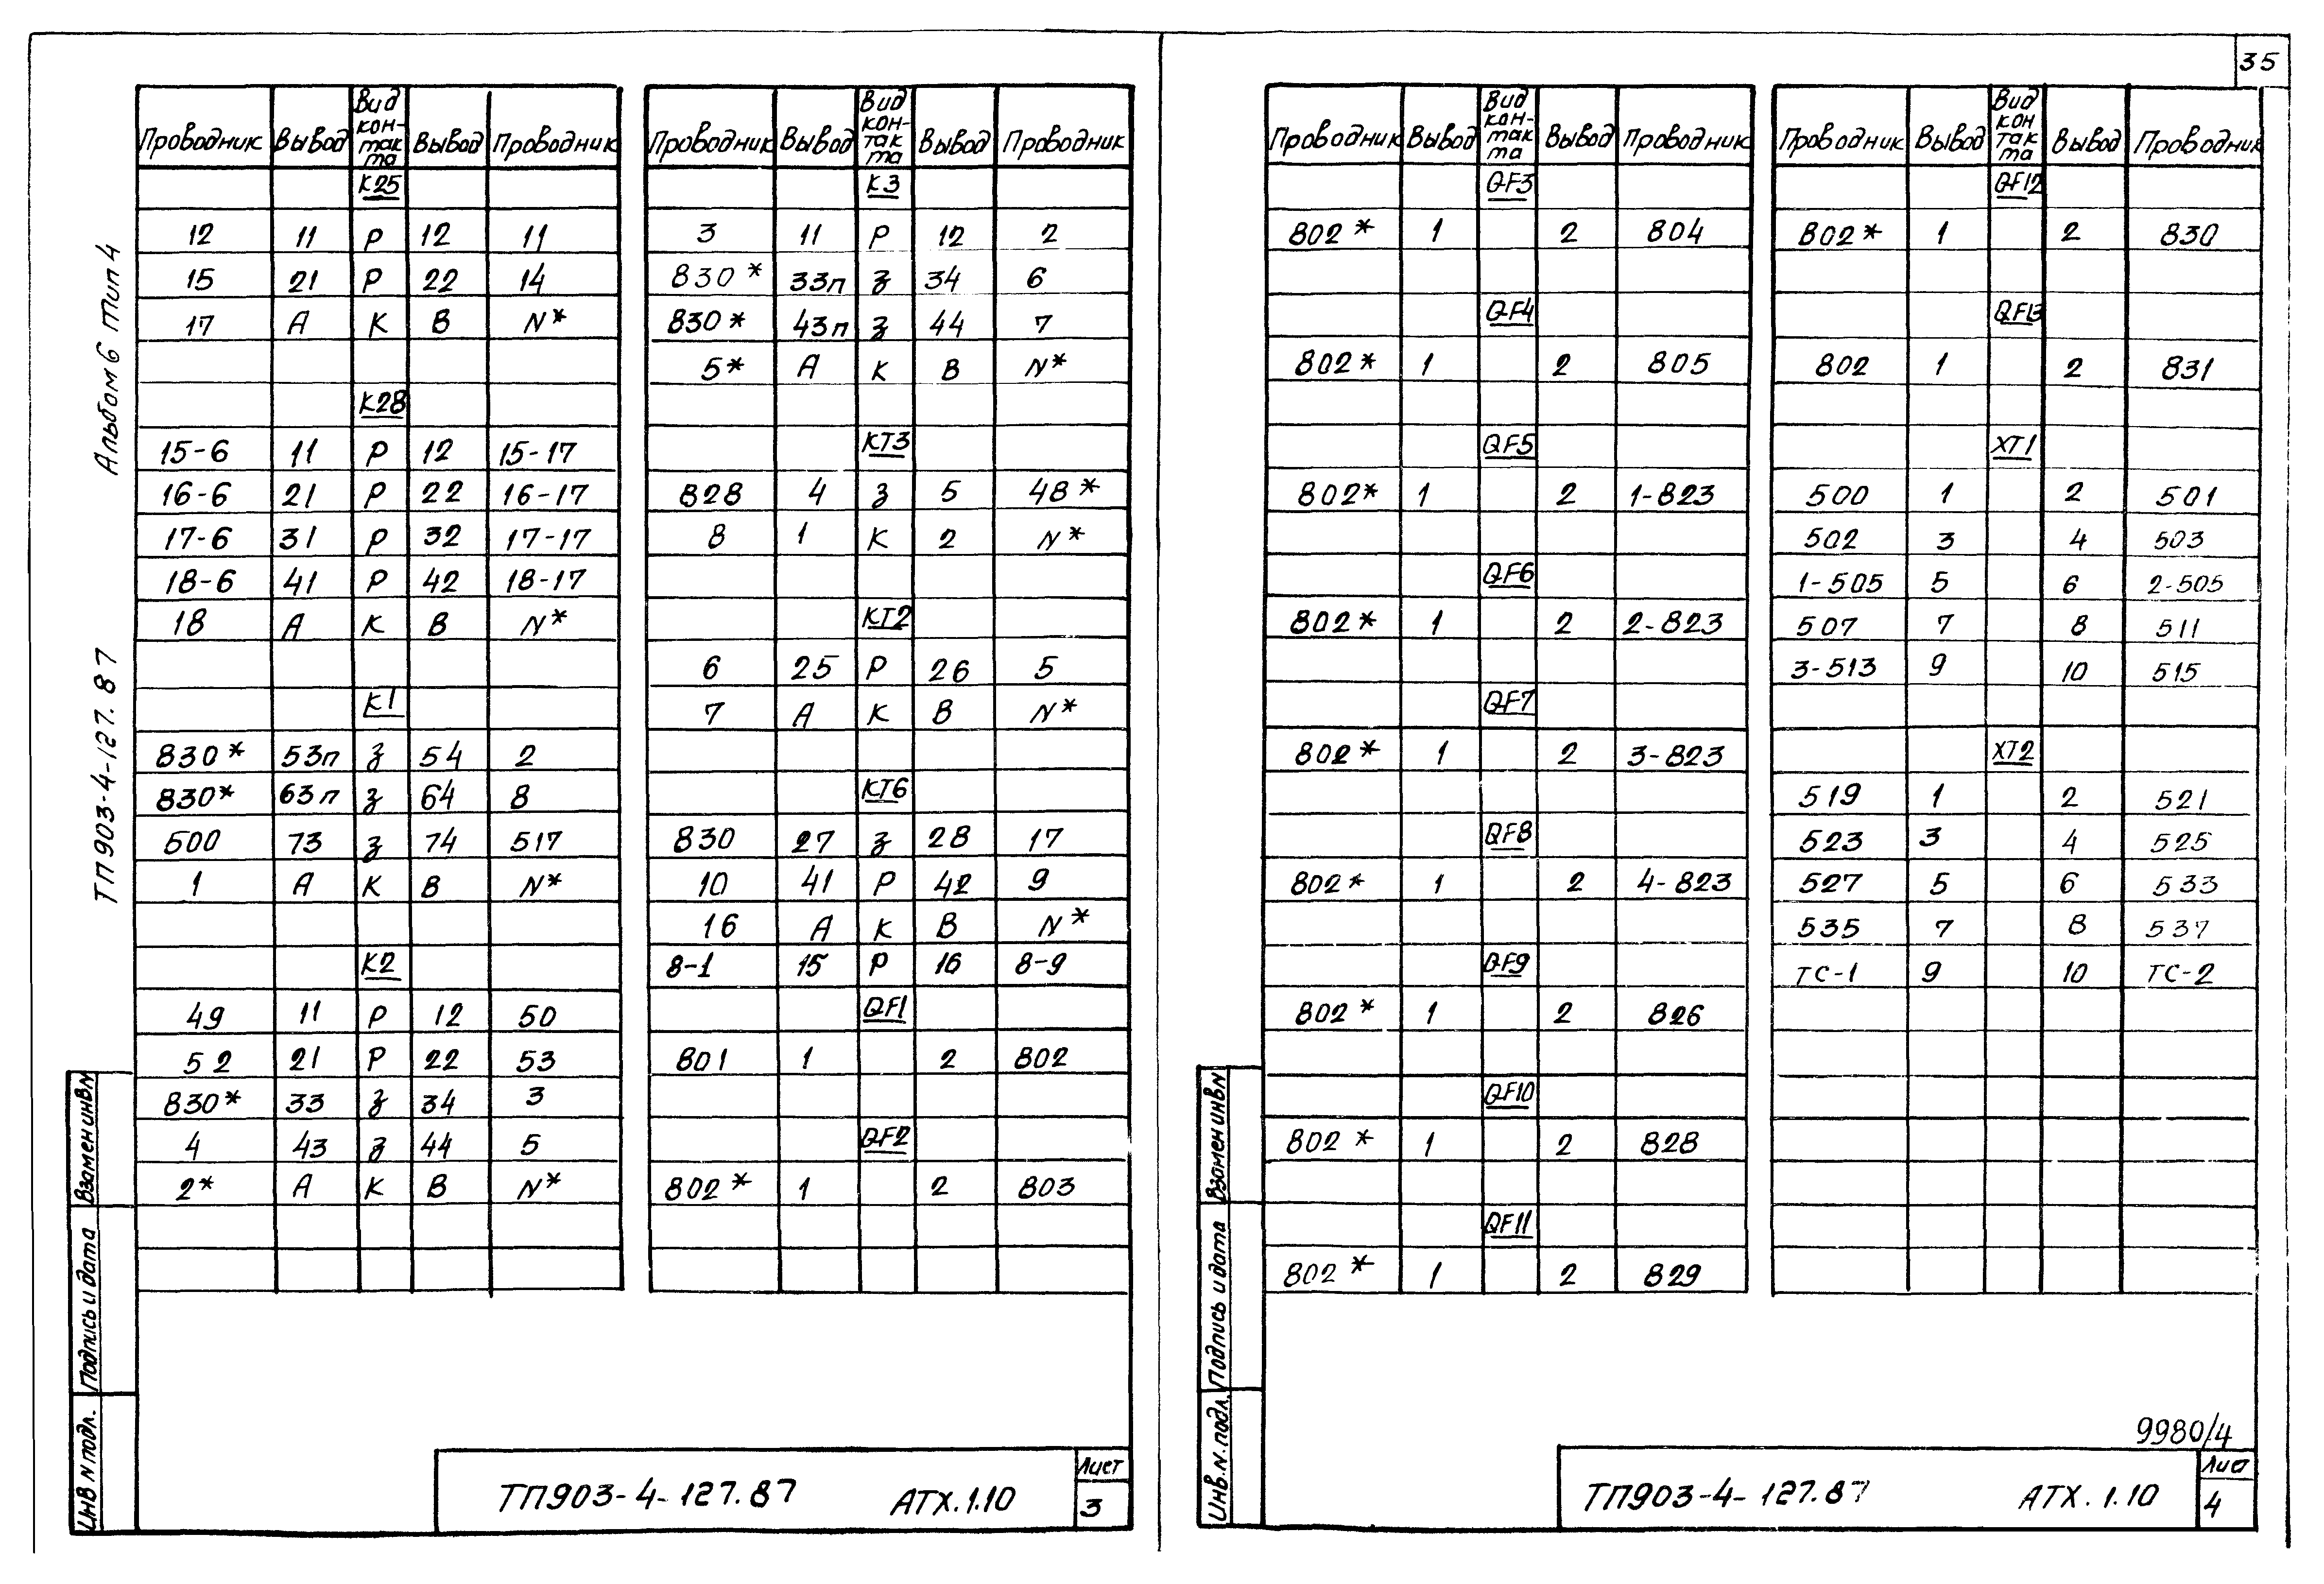 35
Альбом 6 тип 4
ТП903-4-127.87
Проводник Вывод Вид кон-такта Вывод Проводник
К25
12 11 Р 12 11
15 21 Р 22 14
17 А К В N*
К28
15-6 11 Р 12 15-17
16-6 21 Р 22 16-17
17-6 31 Р 32 17-17
18-6 41 Р 42 18-17
18 А К В N*
К1
830* 53п З 54 2
830* 63п З 64 8
500 73 З 74 517
1 А К В N*
К2
49 11 Р 12 50
52 21 Р 22 53
830* 33 З 34 3
4 43 З 44 5
2* А К В N*
Проводник Вывод Вид кон-такта Вывод Проводник
К3
3 11 Р 12 2
830* 33п З 34 6
830* 43п З 44 7
5* А К В N*
КТ3
828 4 З 5 48*
8 1 К 2 N*
КТ2
6 25 Р 26 5
7 А К В N*
КТ6
830 27 З 28 17
10 41 Р 42 9
16 А К В N*
8-1 15 Р 16 8-9
QF1
801 1 2 802
QF2
802* 1 2 803
Взамен инв N
Подпись и дата
Инв N подл.
ТП903-4-127.87 АТХ.1.10
Лист
3
Проводник Вывод Вид кон-такта Вывод Проводник
QF3
802* 1 2 804
QF4
802* 1 2 805
QF5
802* 1 2 1-823
QF6
802* 1 2 2-823
QF7
802* 1 2 3-823
QF8
802* 1 2 4-823
QF9
802* 1 2 826
QF10
802* 1 2 828
QF11
802* 1 2 829
Проводник Вывод Вид кон такта Вывод Проводник
QF12
802* 1 2 830
QF13
802 1 2 831
ХТ1
500 1 2 501
502 3 4 503
1-505 5 6 2-505
507 7 8 511
3-513 9 10 515
ХТ2
519 1 2 521
523 3 4 525
527 5 6 533
535 7 8 537
ТС-1 9 10 ТС-2
Взамен инв N
Подпись и дата
Инв. N. подл.
9980/4
ТП903-4-127.87 АТХ.1.10
Лист
4